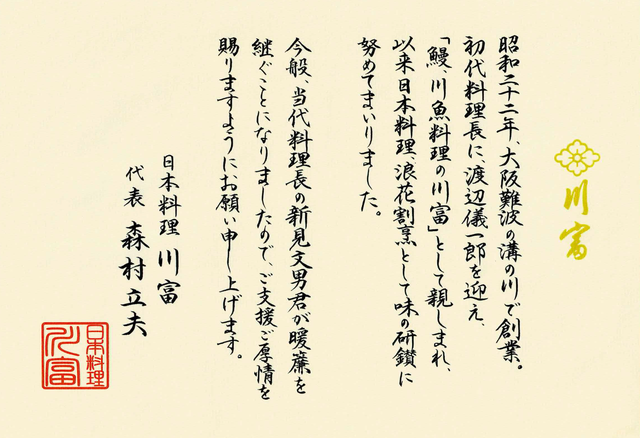 川富
昭和二十二年、大阪難波の溝の川で創業。
初代料理長に、渡辺儀一郎を迎え、
「鰻、川魚料理の川富」として親しまれ、
以来日本料理、浪花割烹として味の研鑽に
努めてまいりました。
今般、当代料理長の新見文男君が暖簾を
継ぐことになりましたので、ご支援ご厚情を
賜りますようにお願い申し上げます。
日本料理 川富
代表 森村立夫
日本料理
川富